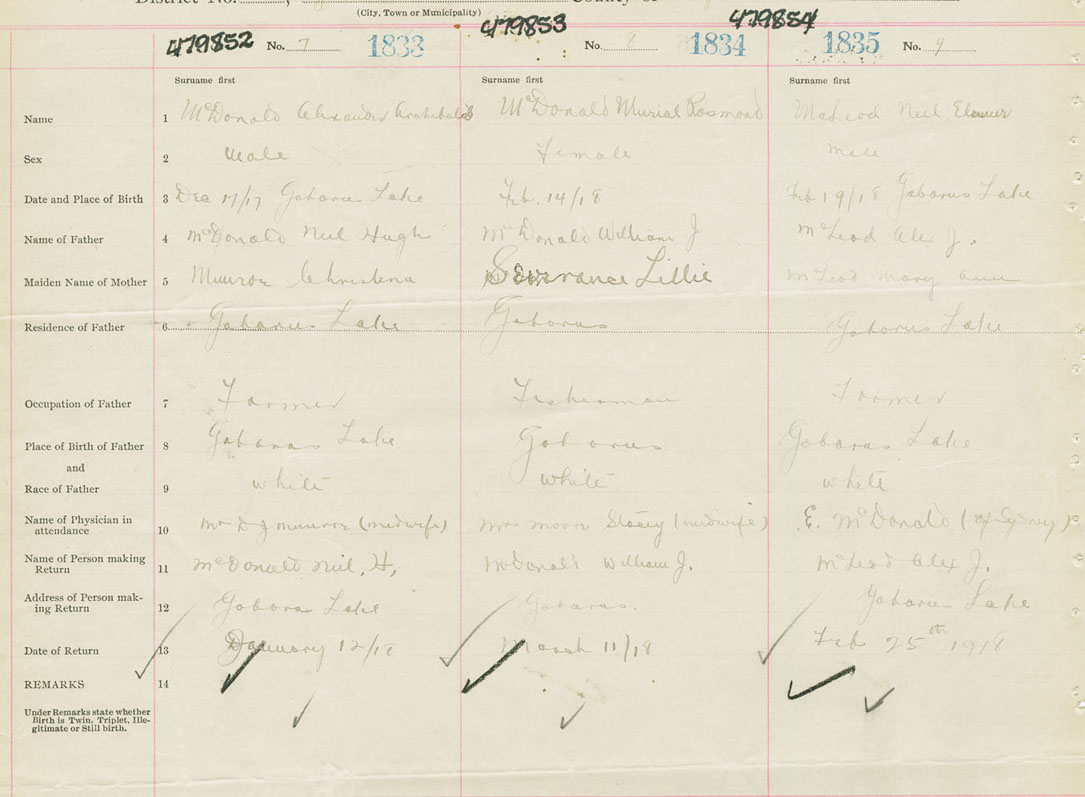 District No.
County of
(City, Town or Municipality)
479852 No. 7 1833
479853 No. 8 1834
479854 1835 No. 9
Surname first Surname first Surname first
Name 1 McDonald Alexander Archibald McDonald Murial Rosmond McLeod Neil
Sex 2 Male Female Male
Date and Place of Birth 3 Dec 17/17 Gabarus Lake Feb. 14/18 Feb 19/18 Gabarus Lake
Name of Father 4 McDonald Neil Hugh McDonald William J McLeod Alex J.
Maiden Name of Mother 5 Munroe Christena Severance Lillie McLeod Mary Ann
Residence of Father 6 Gabarus Lake Gabarus Gabarus Lake
Occupation of Father 7 Farmer Fisherman Farmer
Place of Birth of Father 8 Gabarus Lake Gabarus Gabarus Lake
and
Race of Father 9 white white white
Name of Physician in
attendance 10 D J Munroe (midwife) Mrs Moore Stacey (midwife) E. McDonald (of Sydney)
Name of Person making
Return 11 McDonald Neil, H, McDonald William J. McLeod Alex J.
Address of Person mak-
ing Return 12 Gabarus Lake Gabarus. Gabarus Lake
Date of Return 13 January 12/18 March 11/18 Feb 25th 1918
REMARKS 14
Under Remarks state whether
Birth is Twin, Triplet, Ille-
gitimate or Still birth.